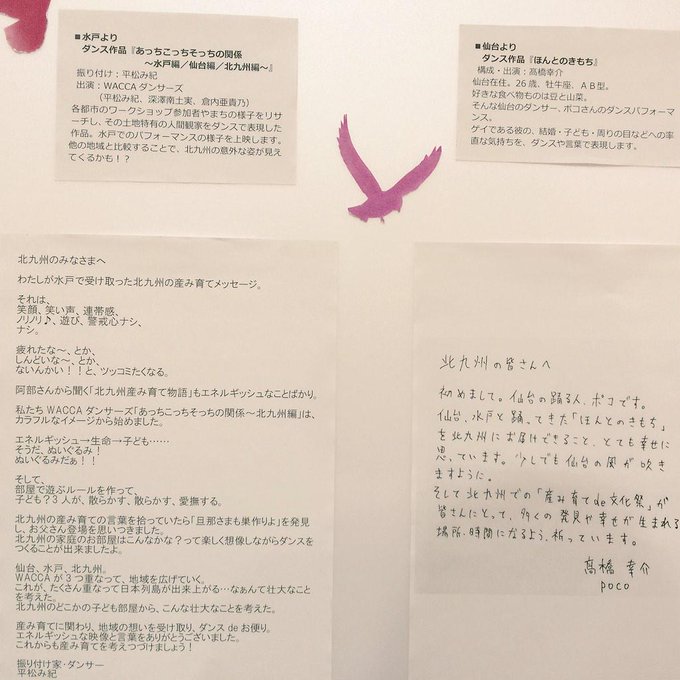 ■水戸より
ダンス作品『あっちこっちそっちの関係
～水戸編／仙台編／北九州編～』
振り付け：平松み紀
出演：WACCAダンサーズ
（平松み紀、深澤南土実、倉内亜貴乃）
各都市のワークショップ参加者やまちの様子をリサ
ーチし、その土地特有の人間観家をダンスで表現した
作品。水戸でのパフォーマンスの様子を上映します。
他の地域と比較することで、北九州の意外な姿が見え
てくるかも！？
■仙台より
ダンス作品『ほんとのきもち』
構成・出演：髙橋幸介
仙台在住。26歳、牡牛座、ＡＢ型。
好きな食べ物ものは豆と山菜。
そんな仙台のダンサー、ポコさんのダンスパフォーマ
ンス。
ゲイである彼の、結婚・子ども・周りの目などへの率
直な気持ちを、ダンスや言葉で表現します。
北九州のみなさまへ
わたしが水戸で受け取った北九州の産み育てメッセージ。
それは、
笑顔、笑い声、連帯感、
ノリノリ♪、遊び、警戒心ナシ、
ナシ。
疲れたな～、とか、
しんどいな～、とか、
ないんかい！！と、ツッコミたくなる。
阿部さんから聞く「北九州産み育て物語」もエネルギッシュなことばかり。
私たちWACCAダンサーズ「あっちこっちそっちの関係～北九州編」は、
カラフルなイメージから始めました。
エネルギッシュ→生命→子ども……
そうだ、ぬいぐるみ！
ぬいぐるみだぁ！！
そして、
部屋で遊ぶルールを作って、
子ども？3人が、散らかす、散らかす、愛撫する。
北九州の産み育ての言葉を拾っていたら「旦那さまも巣作りよ」を発見
し、お父さん登場を思いつきました。
北九州の家庭のお部屋はこんなかな？って楽しく想像しながらダンスを
つくることが出来ましたよ。
仙台、水戸、北九州。
WACCAが3つ重なって、地域を広げていく。
これが、たくさん重なって日本列島が出来上がる…なぁんて壮大なこと
を考えた。
北九州のどこかの子ども部屋から、こんな壮大なことを考えた。
産み育てに関わり、地域の想いを受け取り、ダンスdeお便り。
エネルギッシュな映像と言葉をありがとうございました。
これからも産み育てを考えつづけましょう！
振り付け家・ダンサー
平松み紀
北九州の皆さんへ
初めまして。仙台の踊る人、ポコです。
仙台、水戸と踊ってきた「ほんとのきもち」
を北九州にお届けできること、とても幸せに
思っています。少しでも仙台の風が吹き
ますように。
そして北九州での「産み育てde文化祭」が
皆さんにとって、多くの発見や幸せが生まれる
場所、時間になるよう、祈っています。
髙橋幸介
poco